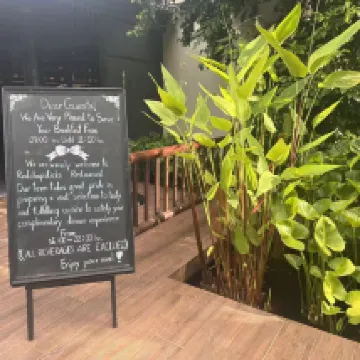 Dear Guests,
We Are Very Pleased to Serve
Your Breakfast From
Until
We are warmly welcome to
Restaurant
Our Team takes great pride in
preparing a vast selection to tasty
and fulfilling cuisine to satisfy your
complimentary dinner experience
From
- 22:00 hr.
(ALL BEVERAGES ARE EXCLUDED)
Enjoy your meal